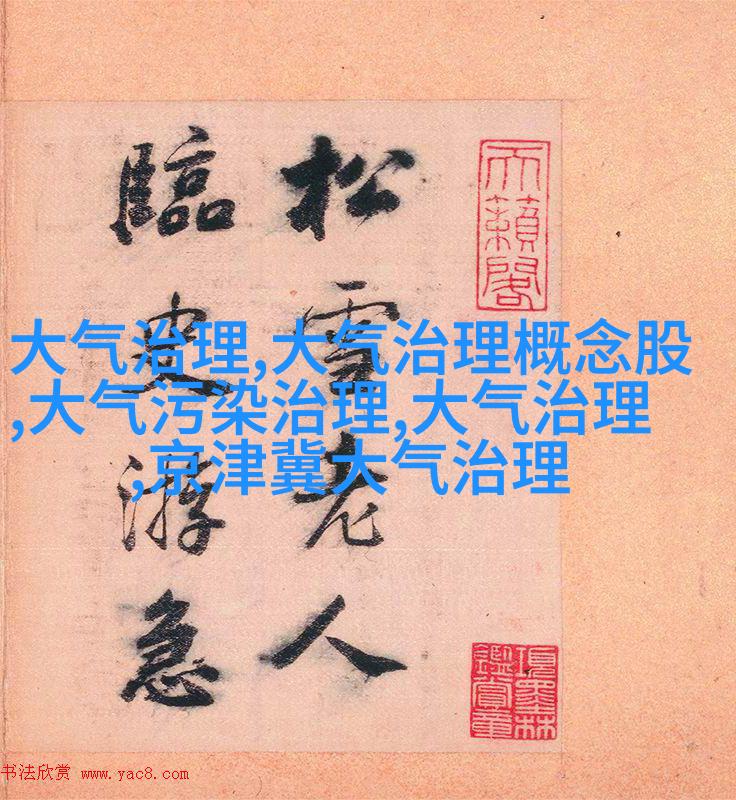 天籟閣
松雪老人
臨史游急
項墨林
鑑賞章
大气治理,大气治理概念股
,大气污染治理,大气治理
,京津冀大气治理
书法欣赏 www.yac8.com